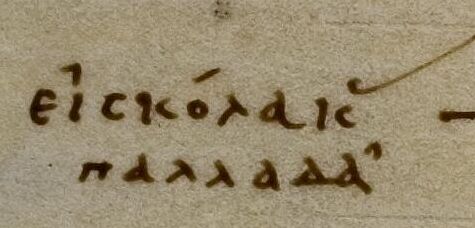 εἰς κόλακ
παλλαδα'